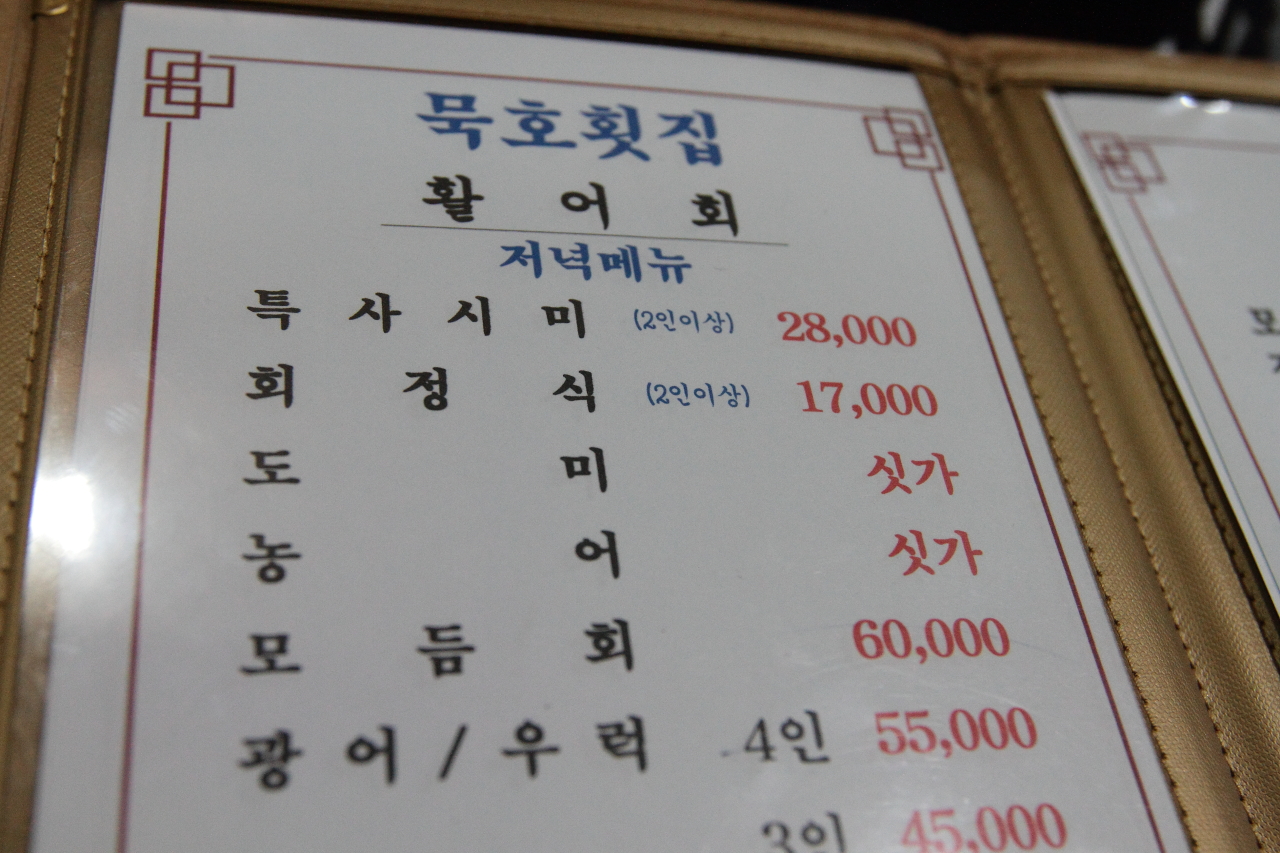 묵호횟집
활어회
저녁메뉴
특사시미 (2인이상) 28,000
회정식 (2인이상) 17,000
도미 싯가
농어 싯가
모듬회 60,000
광어/우럭 4인 55,000
3인 45,000
모